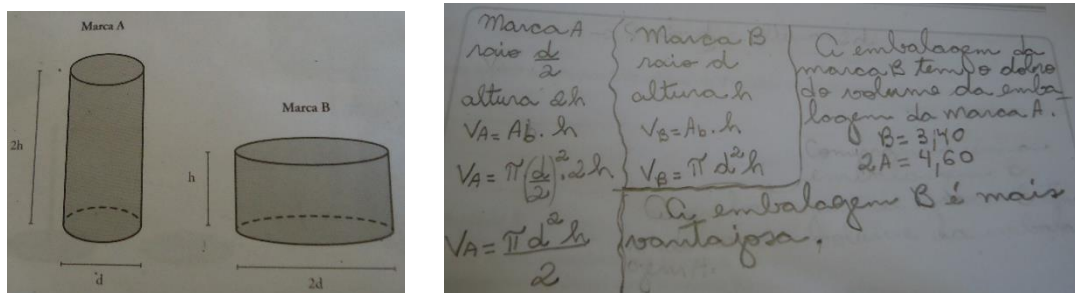 Marca A
2h
d
Marca B
h
2d
Marca A
raio d/2
altura 2h
VA = Ab. h
VA = π(d/2)².2h
VA = πd²h/2
Marca B
raio d
altura h
VB = Ab. h
VB = π d²h
A embalagem da
marca B tem o dobro
do volume da emba-
lagem da marca A.
B = 3,40
2A = 4,60
A embalagem B é mais
vantajosa.